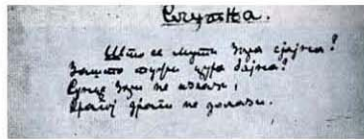 Слутња.
Што се мути зора сјајна?
Зашто тужи цура бајна?
Сунце зори не излази,
Драгој драги не долази.